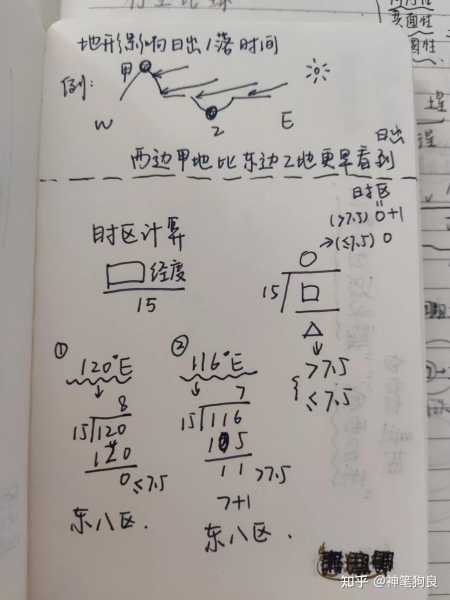 地形影响日出/落时间
例:
甲
W
乙
E
西边甲地比东边乙地更早看到
日出
时区计算
经度
15
时区
(>7.5) 0+1
→(≤7.5) 0
15
>7.5
≤7.5
① 120°E
8
15 120
120
0 ≤7.5
东八区.
② 116°E
7
15 116
105
11 >7.5
7+1
东八区.
知乎 @神笔狗良